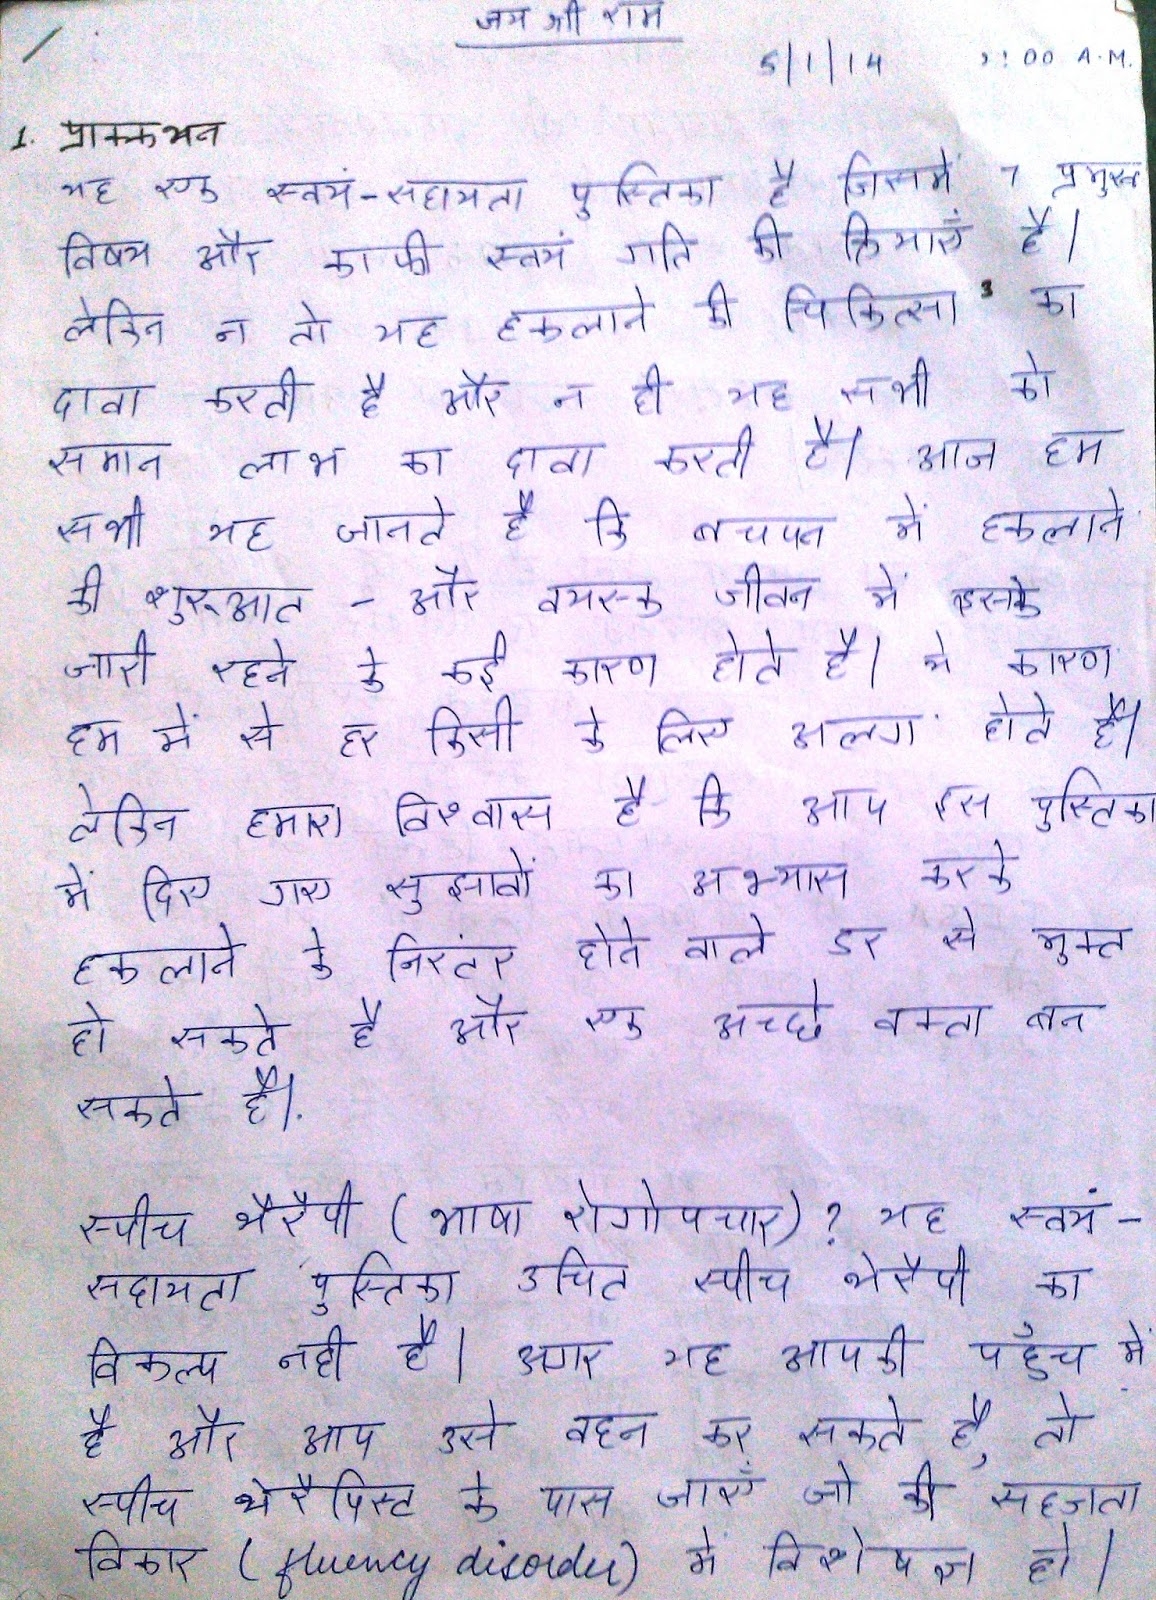 जय श्री राम
5/1/14 :00 A.M.
1. प्राक्कथन
यह एक स्वयं-सहायता पुस्तिका है जिसमें 7 प्रमुख
विषय और काफी स्वयं गति की क्रियाएँ है।
लेकिन न तो यह हकलाने की चिकित्सा का
दावा करती है और न ही यह सभी को
समान लाभ का दावा करती है। आज हम
सभी यह जानते है कि बचपन में हकलाने
की शुरूआत - और वयस्क जीवन में इसके
जारी रहने के कई कारण होते है। ये कारण
हम में से हर किसी के लिए अलग होते हैं।
लेकिन हमारा विश्वास है कि आप इस पुस्तिका
में दिए गए सुझावों का अभ्यास करके
हकलाने के निरंतर होने वाले डर से मुक्त
हो सकते है और एक अच्छे वक्ता बन
सकते हैं।
स्पीच थैरेपी (भाषा रोगोपचार)? यह स्वयं-
सहायता पुस्तिका उचित स्पीच थेरैपी का
विकल्प नही है। अगर यह आपकी पहुँच में
है और आप उसे वहन कर सकते है, तो
स्पीच थेरैपिस्ट के पास जाएँ जो की सहजता
विकार (fluency disorder) में विशेषज्ञ हो।